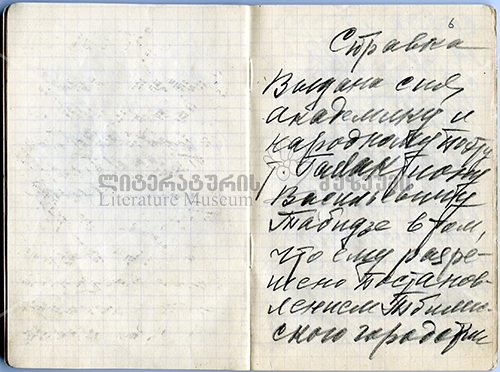 6
Справка
Выдана сия
академику и
народному поэту
т. Галактиону
Васильевичу
Табидзе в том,
что ему разре-
шено Постанов-
лением Тбилис-
ского
ლიტერატურის მუზეუმი
Literature Museum